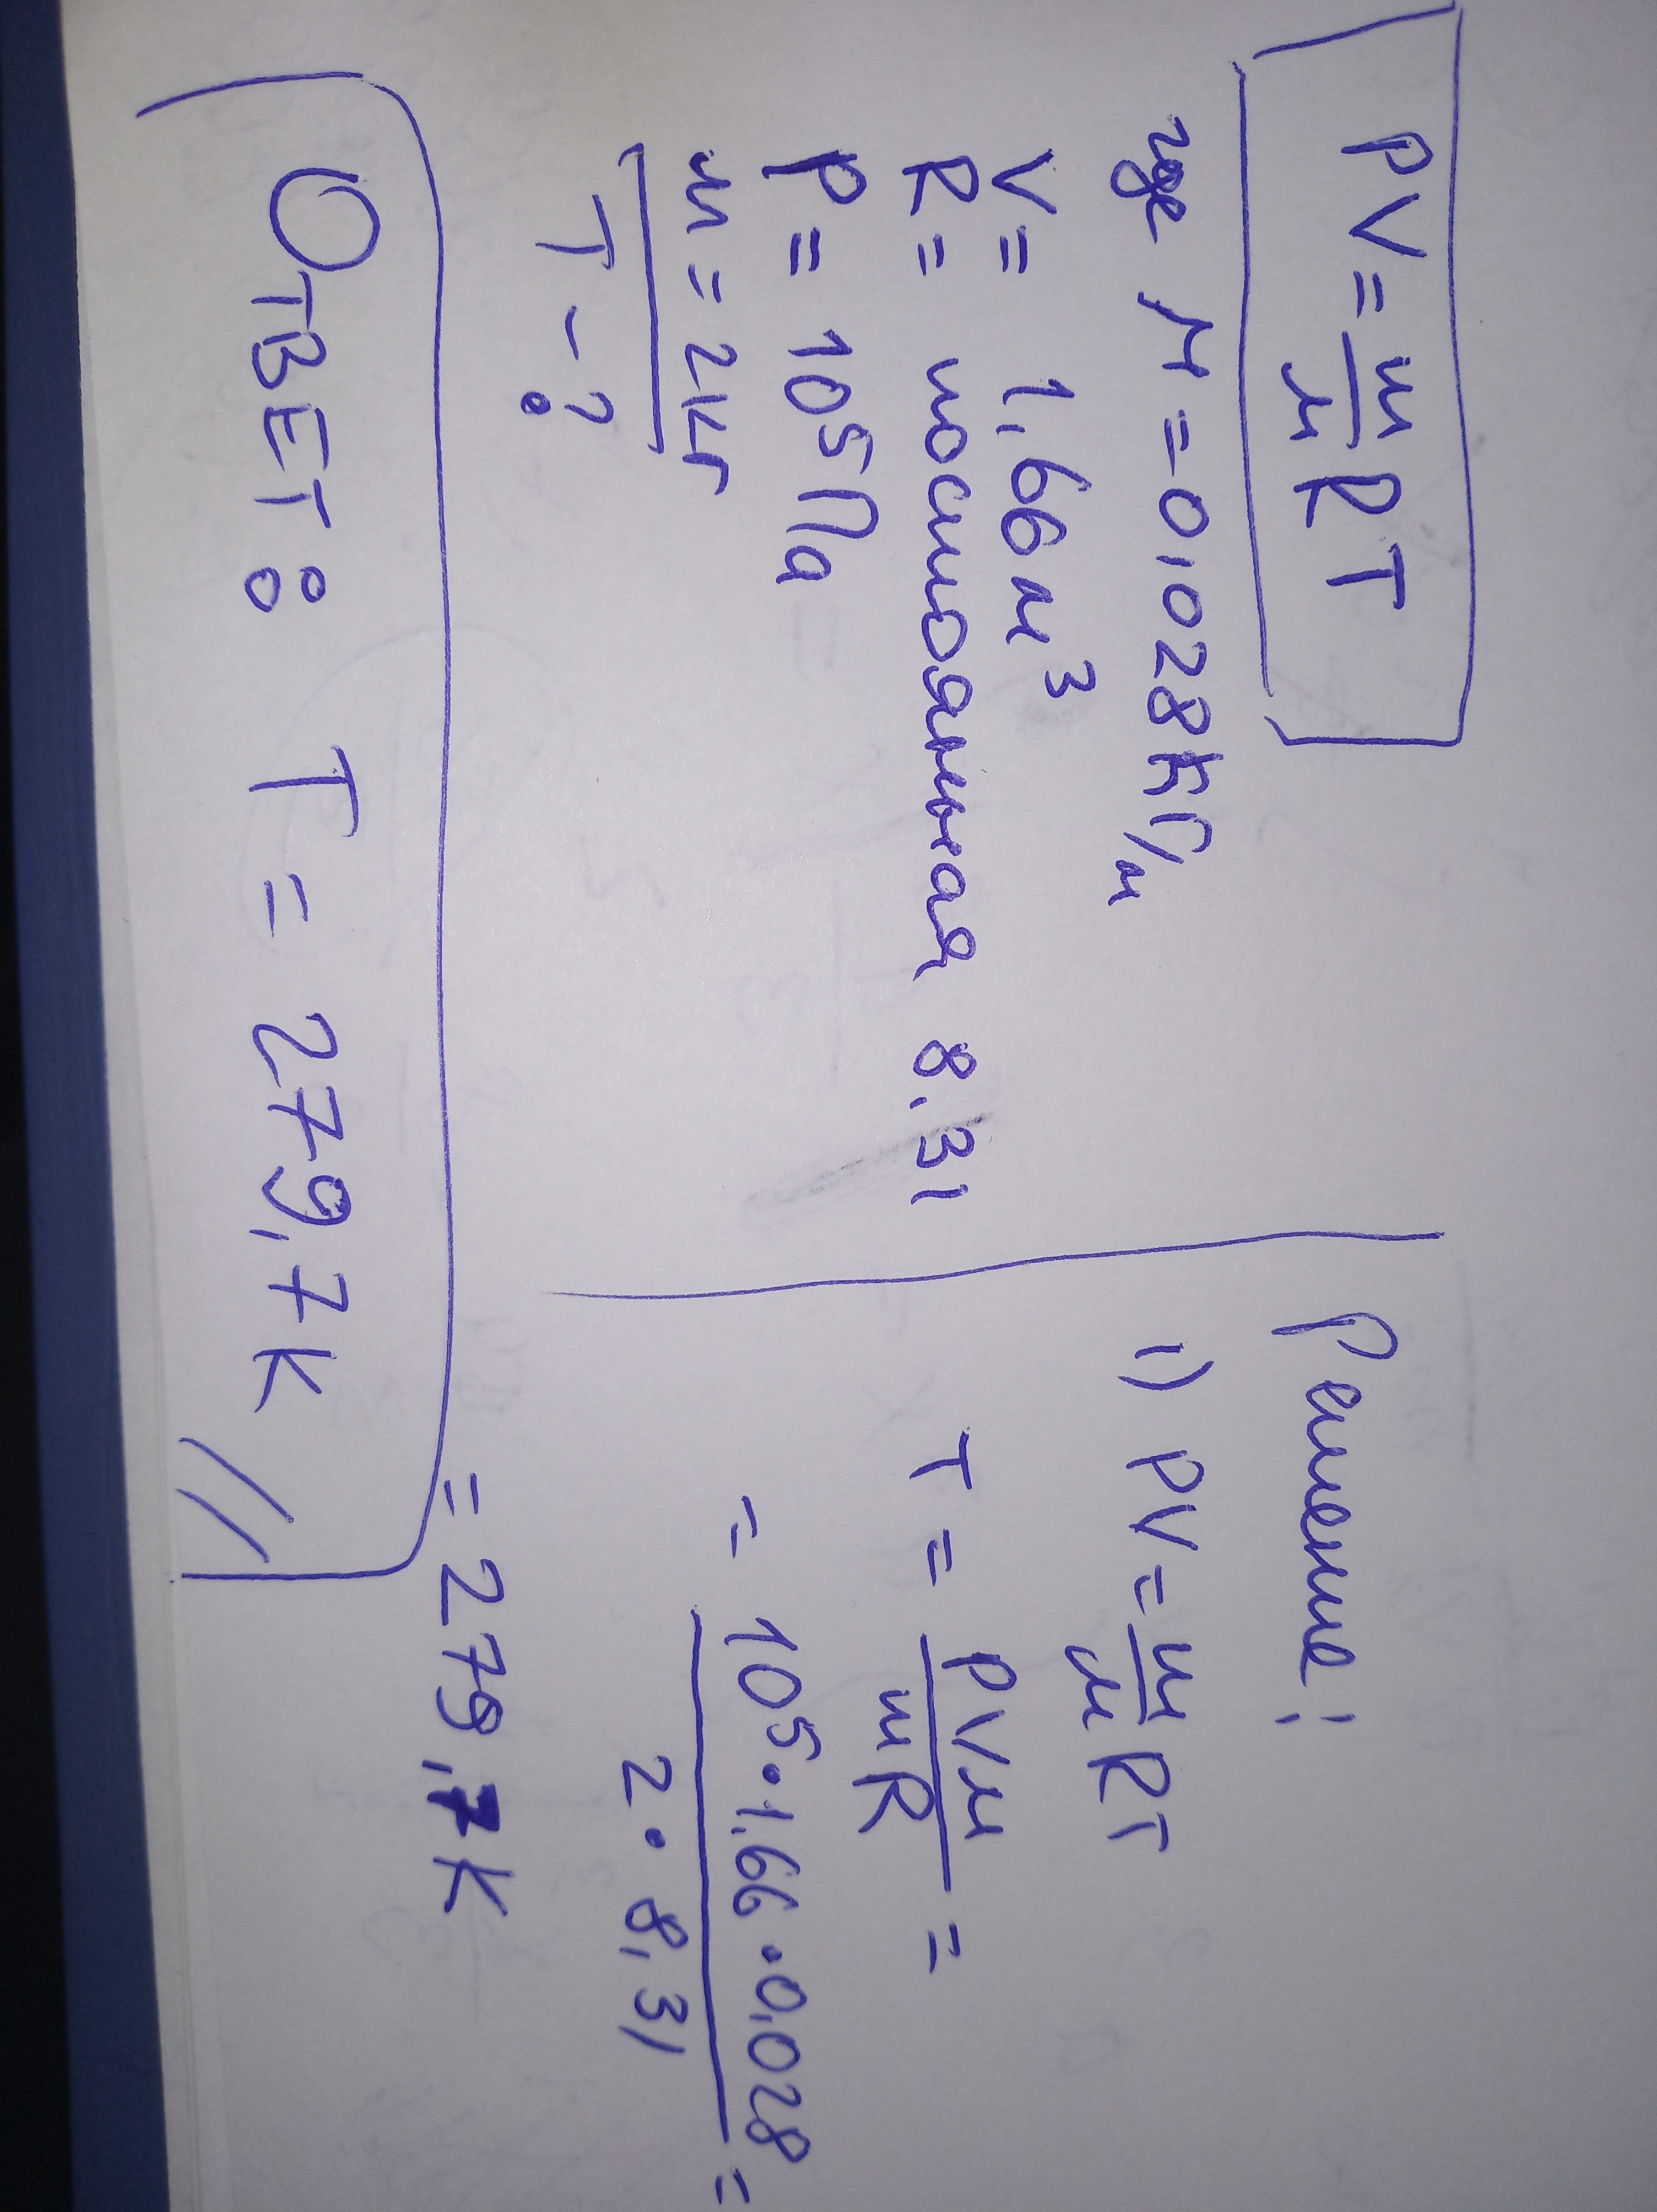 PV = m/μ RT
где μ = 0,028кг/м
V = 1,66 м³
R = постоянная 8.31
P = 10⁵ Па
m = 2кг
T - ?
Решение:
1) PV = m/μ RT
T = PVμ/mR =
= 10⁵·1,66·0,028/2·8,31 =
= 279,7К
ОТВЕТ: T = 279,7К //